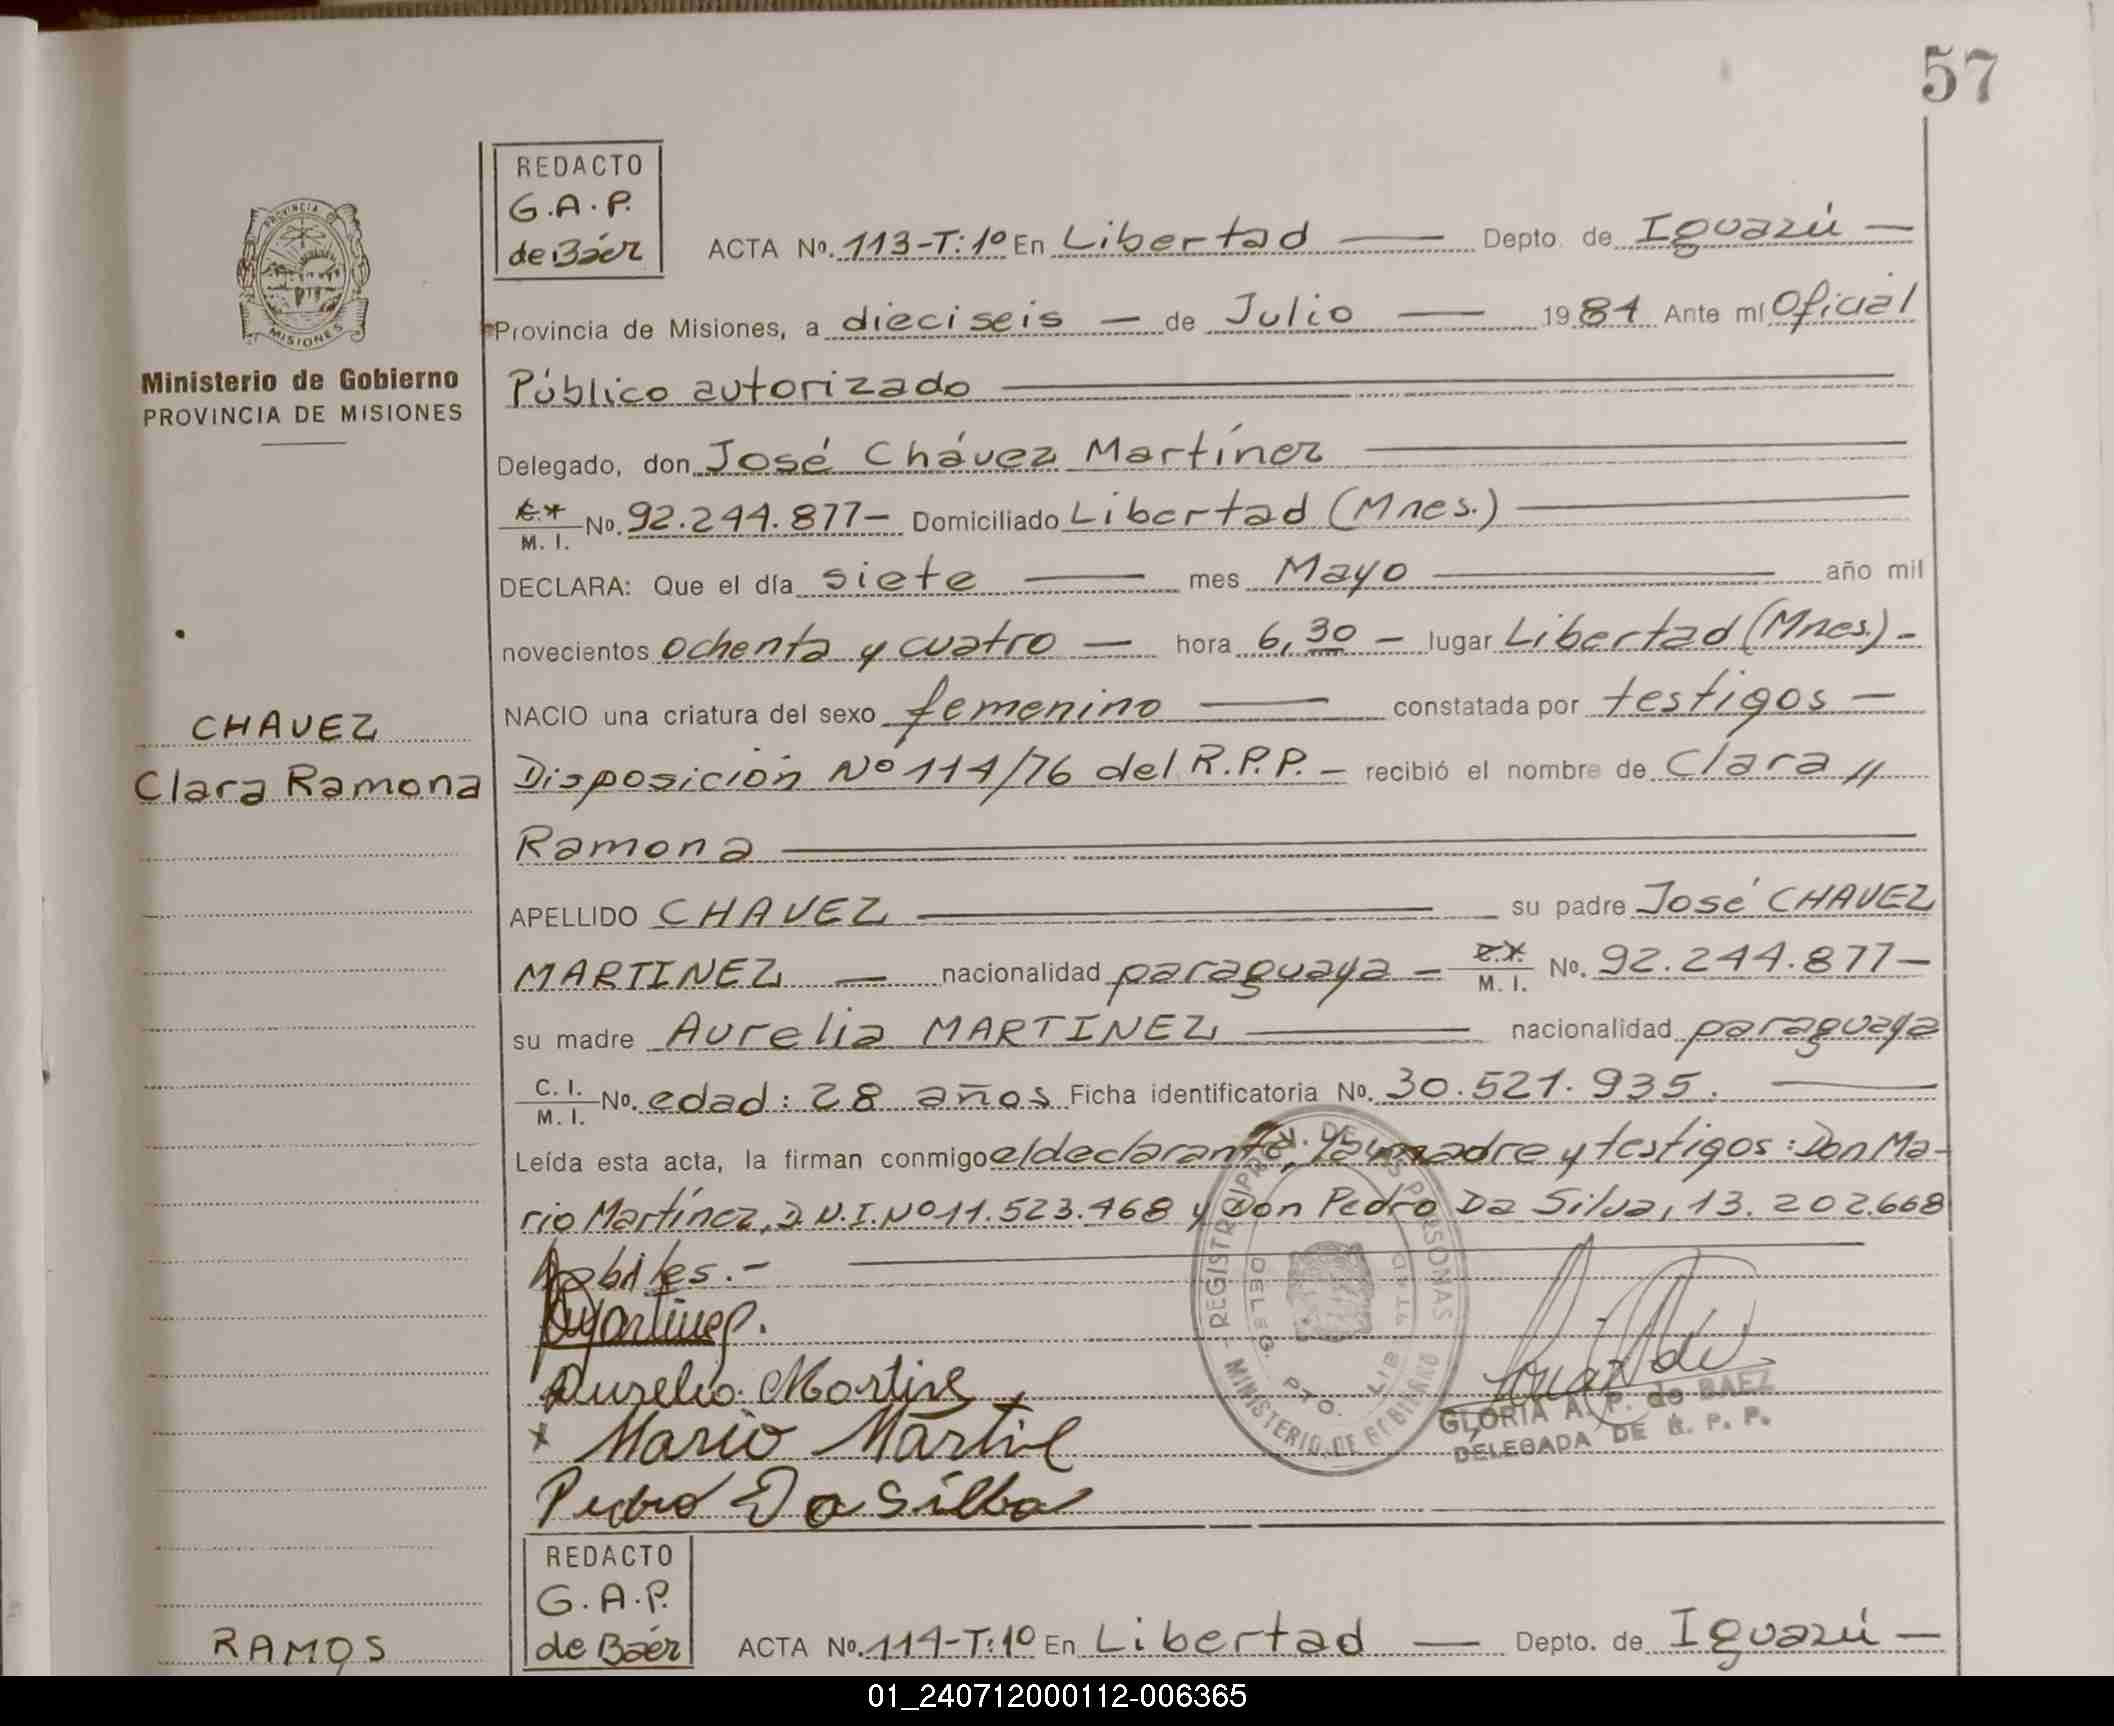 57
REDACTO
G.A.P.
de Báez
ACTA No. 113-T:1º En Libertad — Depto. de Iguazú —
PROVINCIA DE
MISIONES
Ministerio de Gobierno
PROVINCIA DE MISIONES
Provincia de Misiones, a dieciseis — de Julio — 1984 Ante mí Oficial
Público autorizado
Delegado, don José Chávez Martínez
M. I. No. 92.244.877- Domiciliado Libertad (Mnes.)
DECLARA: Que el día siete — mes Mayo — año mil
novecientos ochenta y cuatro — hora 6,30 - lugar Libertad (Mnes.) -
NACIO una criatura del sexo femenino — constatada por testigos —
CHAVEZ
Clara Ramona
Disposición Nº 114/76 del R.P.P. - recibió el nombre de Clara //
Ramona
APELLIDO CHAVEZ — su padre José CHAVEZ
MARTINEZ — nacionalidad paraguaya - M. I. No. 92.244.877-
su madre Aurelia MARTINEZ — nacionalidad paraguaya
C. I. M. I. No. edad: 28 años Ficha identificatoria No. 30.521.935.
Leída esta acta, la firman conmigo el declarante, la madre y testigos: Don Ma-
rio Martínez, D.N.I.Nº 11.523.468 y Don Pedro Da Silva, 13.202.668
hábiles.-
Aurelia Martine
x Mario Martine
Pedro Da Silba
REGISTRO PROV. DE LAS PERSONAS
MINISTERIO DE GOBIERNO
DELEG. PTO. LIBERTAD
GLORIA A. P. de BAEZ
DELEGADA DE R. P. P.
REDACTO
G.A.P.
de Báez
ACTA No. 114-T:1º En Libertad — Depto. de Iguazú —
RAMOS
01_240712000112-006365